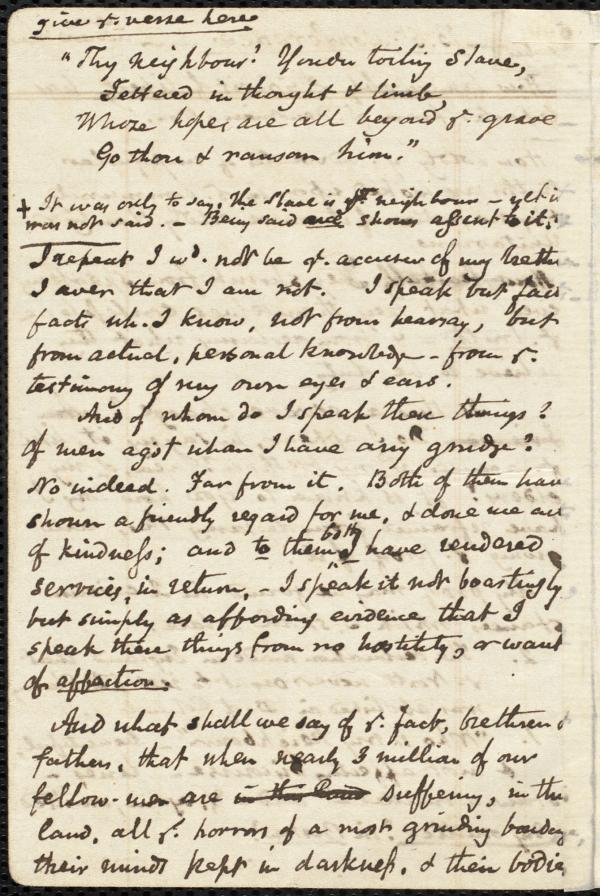 give yᵉ. verse here
"Thy neighbour? Yonder toiling Slave,
Fettered in thought & limb,
Whose hopes are all beyond yᵉ. grave
Go thou & ransom him."
+ It was only to say, The Slave is yʳ. neighbour – yet it
was not said. – Being said shows assent to it.
I repeat I wᵈ. not be yᵉ. accuser of my breth
I aver that I am not. I speak but fac
facts wh. I know, not from hearsay, but
from actual, personal knowledge – from yᵉ.
testimony of my own eyes & ears.
And of whom do I speak these things?
Of men agst whom I have any grudge?
No indeed. Far from it. Both of them hav
shown a friendly regard for me, & done me
of kindness; and to them both I have rendered
services, in return, – I speak it not boastingly
but simply as affording evidence that I
speak these things from no hostility, or want
of affection.
And what shall we say of yᵉ. fact, brethren &
fathers, that when nearly 3 million of our
fellow-men are in this land suffering, in the
land, all yᵉ. horrors of a most grinding bondag
their minds kept in darkness, & their bodies